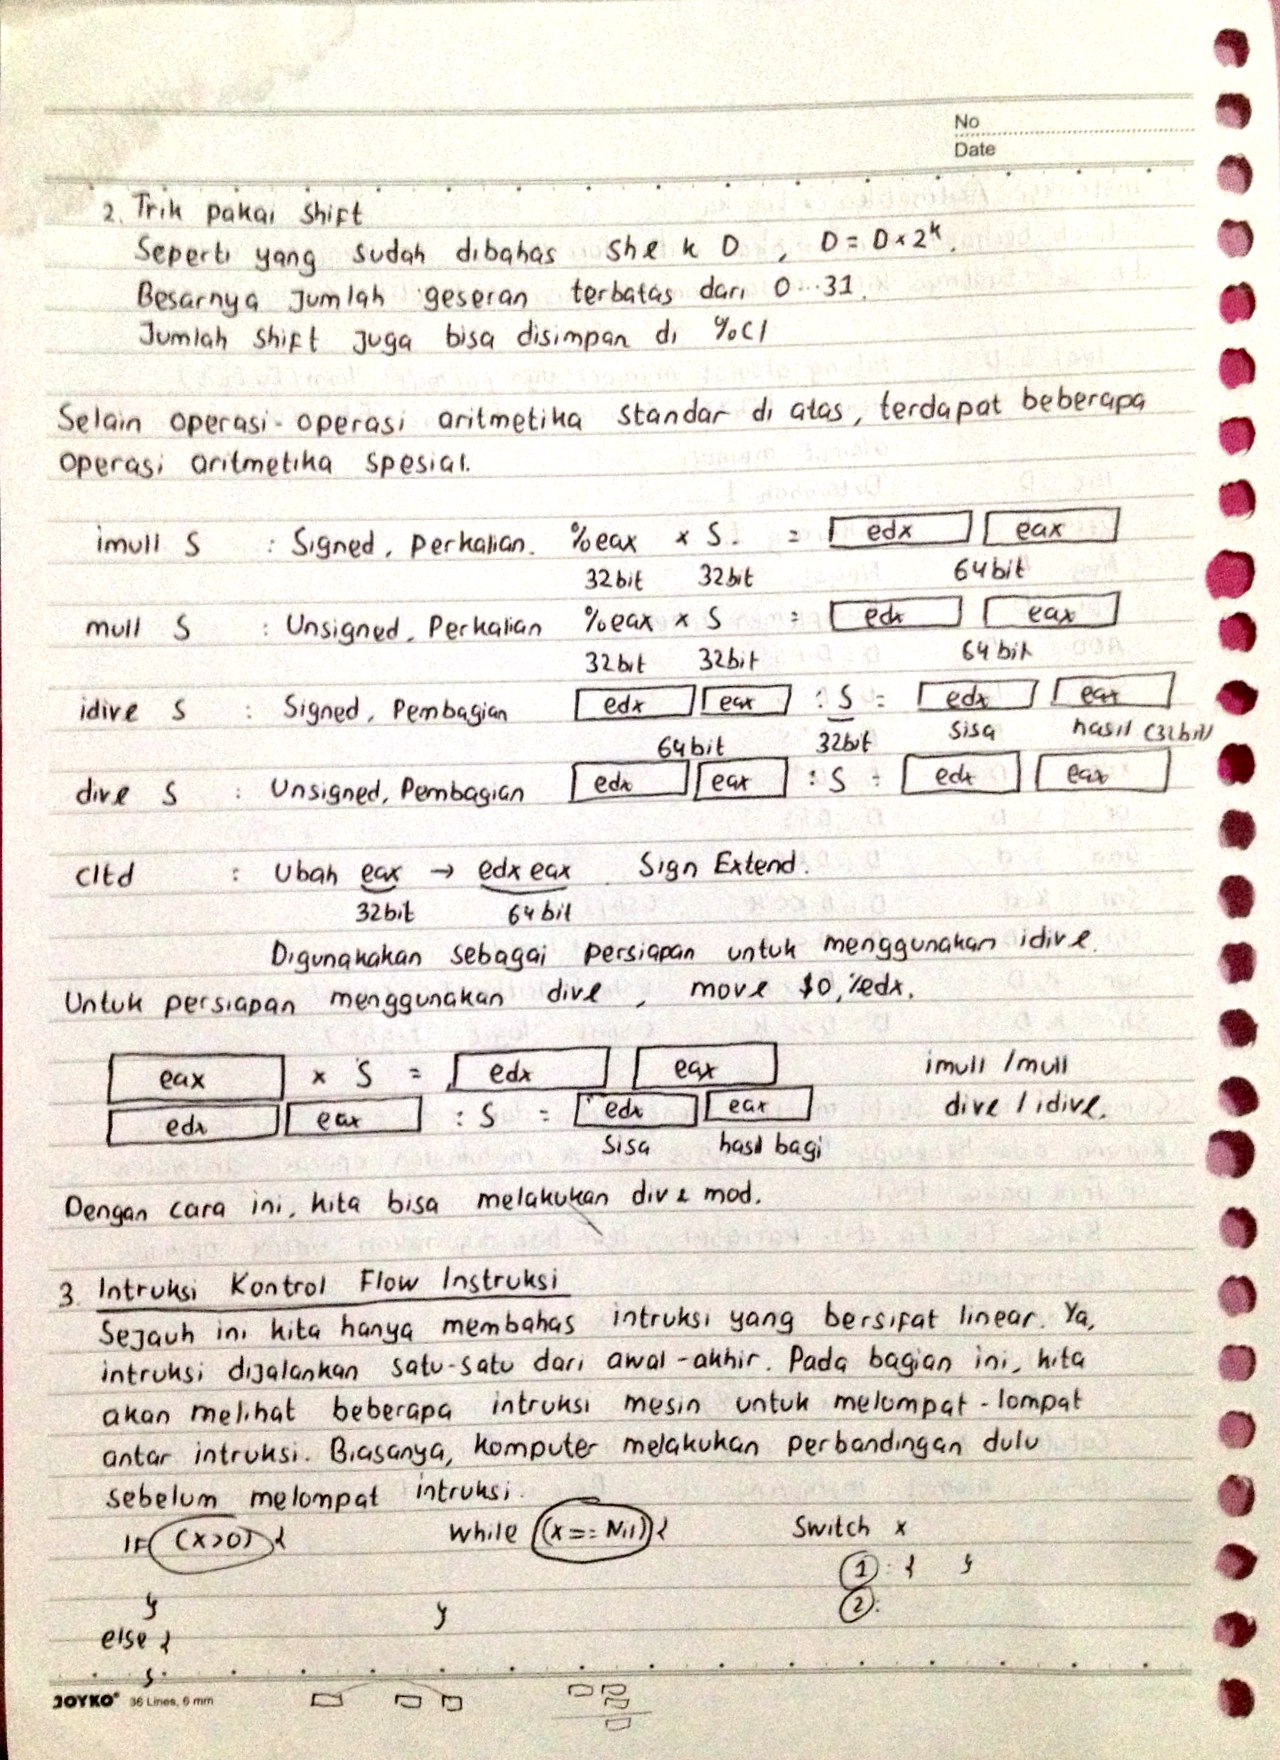 No
Date
2. Trik pakai shift
Seperti yang sudah dibahas shl k D , D = D × 2^k.
Besarnya jumlah geseran terbatas dari 0...31.
Jumlah shift juga bisa disimpan di %cl
Selain operasi-operasi aritmetika standar di atas, terdapat beberapa
operasi aritmetika spesial.
imull S : Signed, perkalian. %eax × S. = edx eax
32bit 32bit 64bit
mull S : Unsigned, Perkalian %eax × S = edx eax
32bit 32bit 64bit
idivl S : Signed, Pembagian edx eax : S = edx eax
64bit 32bit sisa hasil (32bit)
divl S : Unsigned, Pembagian edx eax : S = edx eax
cltd : Ubah eax → edx eax Sign Extend.
32bit 64bit
Digunakakan sebagai persiapan untuk menggunakan idivl.
Untuk persiapan menggunakan divl, movl $0,%edx.
eax × S = edx eax imull/mull
edx eax : S = edx eax divl/idivl.
sisa hasil bagi
Dengan cara ini, kita bisa melakukan div & mod.
3. Intruksi Kontrol Flow Instruksi
Sejauh ini kita hanya membahas intruksi yang bersifat linear. Ya,
intruksi dijalankan satu-satu dari awal-akhir. Pada bagian ini, kita
akan melihat beberapa intruksi mesin untuk melompat-lompat
antar intruksi. Biasanya, komputer melakukan perbandingan dulu
sebelum melompat intruksi.
If (x>0) { while (x == Nil) { Switch x
1: { }
} } 2:
else {
}
JOYKO® 36 Lines, 6 mm